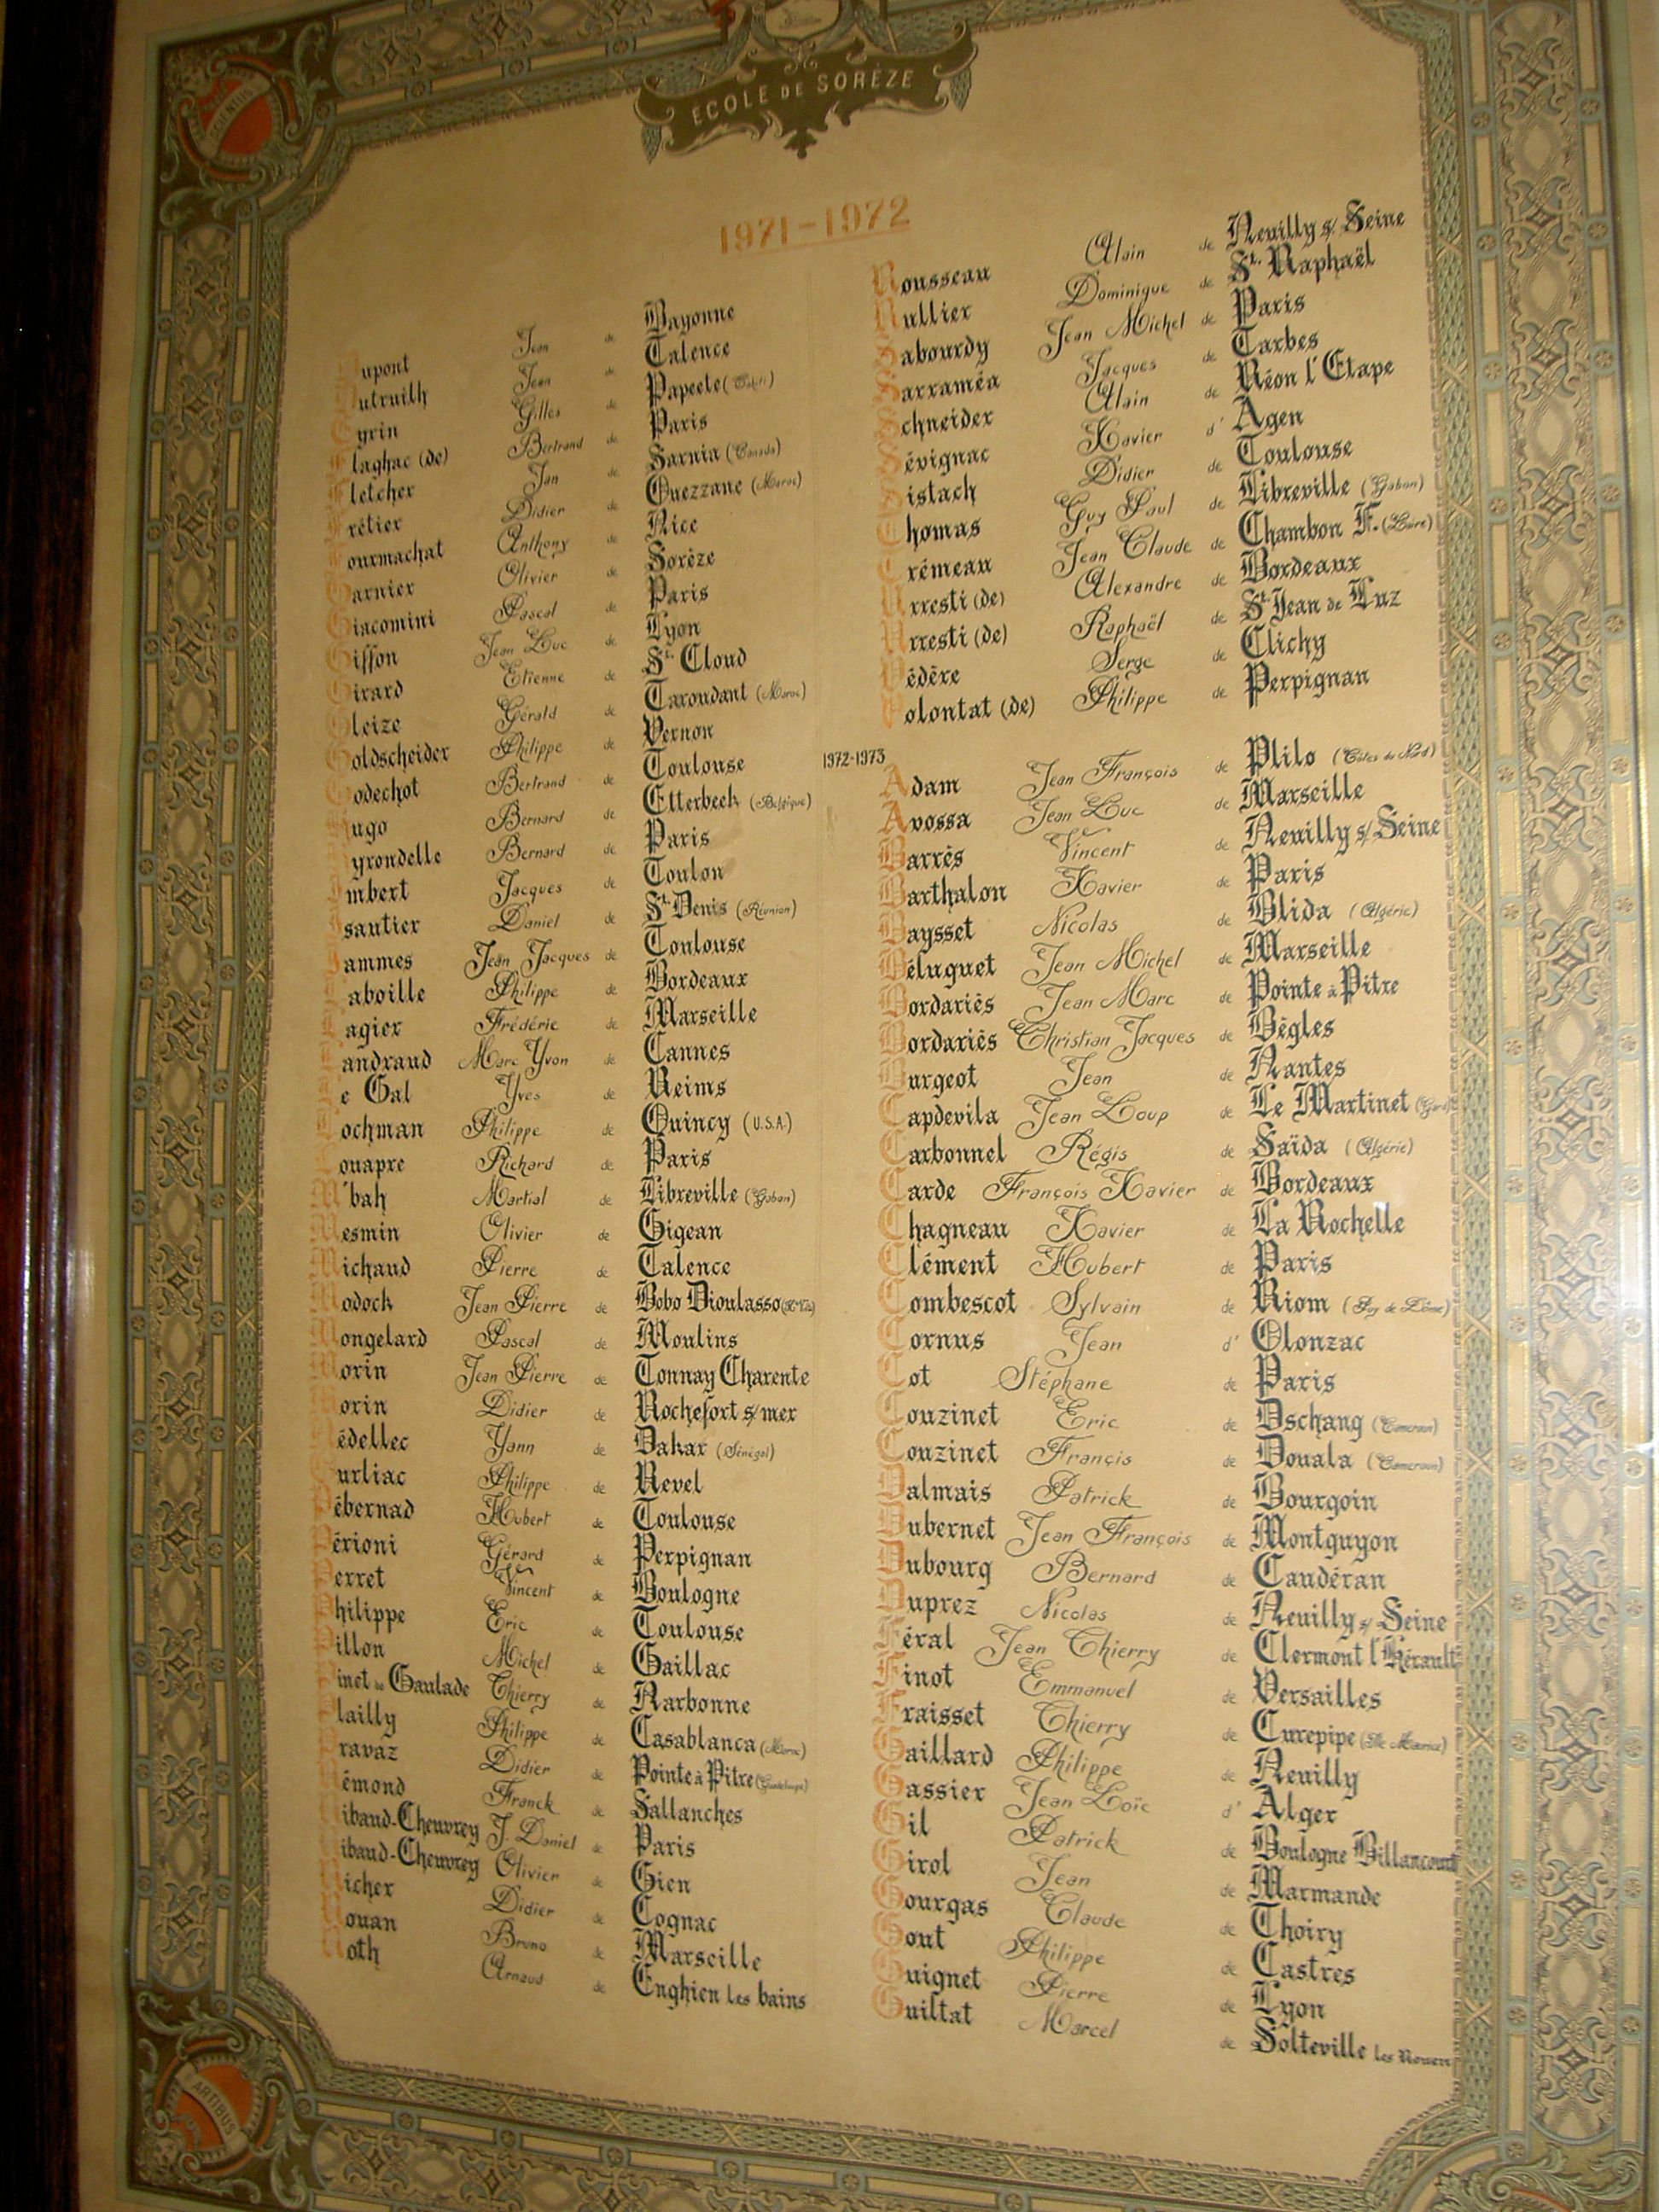 SCIENTIIS
ÉCOLE DE SORÈZE
1971-1972
Dupont Jean de Bayonne
Dutruilh Jean de Talence
Eyrin Gilles de Papeete (Tahiti)
Flaghac (de) Bertrand de Paris
Fletcher Jan de Sarnia (Canada)
Frétier Didier de Ouezzane (Maroc)
Fourmachat Anthony de Nice
Garnier Olivier de Sorèze
Giacomini Pascal de Paris
Gisson Jean Luc de Lyon
Girard Etienne de St. Cloud
Gleize Gérald de Taroudant (Maroc)
Goldscheider Philippe de Vernon
Godechot Bertrand de Toulouse
Hugo Bernard de Etterbeek (Belgique)
Hyrondelle Bernard de Paris
Imbert Jacques de Toulon
Isautier Daniel de St. Denis (Réunion)
Jammes Jean Jacques de Toulouse
Laboille Philippe de Bordeaux
Lagier Frédéric de Marseille
Landraud Marc Yvon de Cannes
Le Gal Yves de Reims
Lochman Philippe de Quincy (U.S.A.)
Louapre Richard de Paris
M'bah Martial de Libreville (Gabon)
Mesmin Olivier de Gigean
Michaud Pierre de Talence
Modock Jean Pierre de Bobo Dioulasso
Mongelard Pascal de Moulins
Morin Jean Pierre de Tonnay Charente
Morin Didier de Rochefort s/mer
Nédellec Yann de Dakar (Sénégal)
Ourliac Philippe de Revel
Pébernad Hubert de Toulouse
Périoni Gérard de Perpignan
Perret Vincent de Boulogne
Philippe Eric de Toulouse
Pillon Michel de Gaillac
Pinet de Gaulade Thierry de Narbonne
Plailly Philippe de Casablanca (Maroc)
Pravaz Didier de Pointe à Pitre (Guadeloupe)
Rémond Franck de Sallanches
Ribaud-Cheuvrey J. Daniel de Paris
Ribaud-Cheuvrey Olivier de Gien
Richer Didier de Cognac
Rouan Bruno de Marseille
Roth Arnaud de Enghien Les bains
Rousseau Alain de Neuilly s/ Seine
Rullier Dominique de St. Raphaël
Sabourdy Jean Michel de Paris
Sarraméa Jacques de Tarbes
Schneider Alain de Réon l'Etape
Sévignac Xavier d' Agen
Sistach Didier de Toulouse
Thomas Guy Paul de Libreville (Gabon)
Trémeau Jean Claude de Chambon F. (Loire)
Urresti (de) Alexandre de Bordeaux
Urresti (de) Raphaël de St. Jean de Luz
Védère Serge de Clichy
Volontat (de) Philippe de Perpignan
1972-1973
Adam Jean François de Plilo (Côtes du Nord)
Avossa Jean Luc de Marseille
Barrès Vincent de Neuilly s/ Seine
Barthalon Xavier de Paris
Baysset Nicolas de Blida (Algérie)
Béluguet Jean Michel de Marseille
Bordariès Jean Marc de Pointe à Pitre
Bordariès Christian Jacques de Bègles
Burgeot Jean de Nantes
Capdevila Jean Loup de Le Martinet (Gard)
Carbonnel Régis de Saïda (Algérie)
Carde François Xavier de Bordeaux
Chagneau Xavier de La Rochelle
Clément Hubert de Paris
Combescot Sylvain de Riom (Puy de Dôme)
Cornus Jean d' Olonzac
Cot Stéphane de Paris
Couzinet Eric de Dschang (Cameroun)
Couzinet Francis de Douala (Cameroun)
Dalmais Patrick de Bourgoin
Dubernet Jean François de Montguyon
Dubourg Bernard de Caudéran
Duprez Nicolas de Neuilly s/ Seine
Féral Jean Thierry de Clermont l'Hérault
Finot Emmanuel de Versailles
Fraisset Thierry de Curepipe (Ile Maurice)
Gaillard Philippe de Neuilly
Gassier Jean Loïc d' Alger
Gil Patrick de Boulogne Billancourt
Girol Jean de Marmande
Gourgas Claude de Thoiry
Gout Philippe de Castres
Guignet Pierre de Lyon
Guiltat Marcel de Solteville les Rouen
ARTIBUS